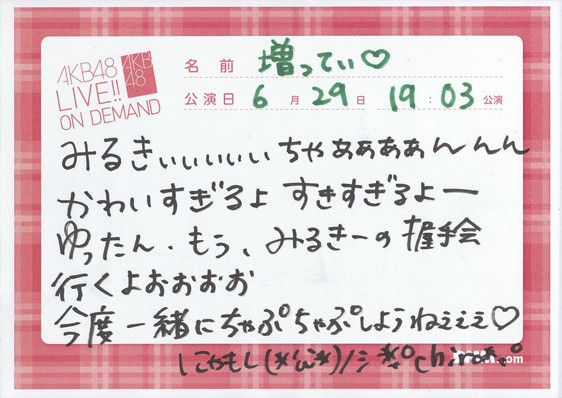 AKB48
LIVE!!
ON DEMAND
AKB
48
名前 増ってぃ♡
公演日 6月29日 19:03公演
みるきぃぃぃぃぃちゃぁぁぁぁんんん
かわいすぎるよ すきすぎるよー
ゆったん、もう、みるきーの握手会
行くよおおおお
今度一緒にちゃぷちゃぷしようねぇぇぇ♡
.com